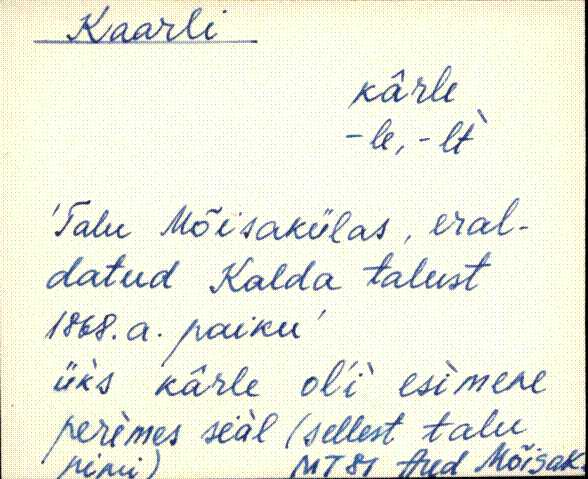 Kaarli
kârle
-le, -lt̀
'Talu Mõisakülas, eral-
datud Kalda talust
1868.a. paiku'
ük̀s kârle ol'ì esìmene
perèmes seàl (sellest talu
nimi) MT81 Aud Mõisak.